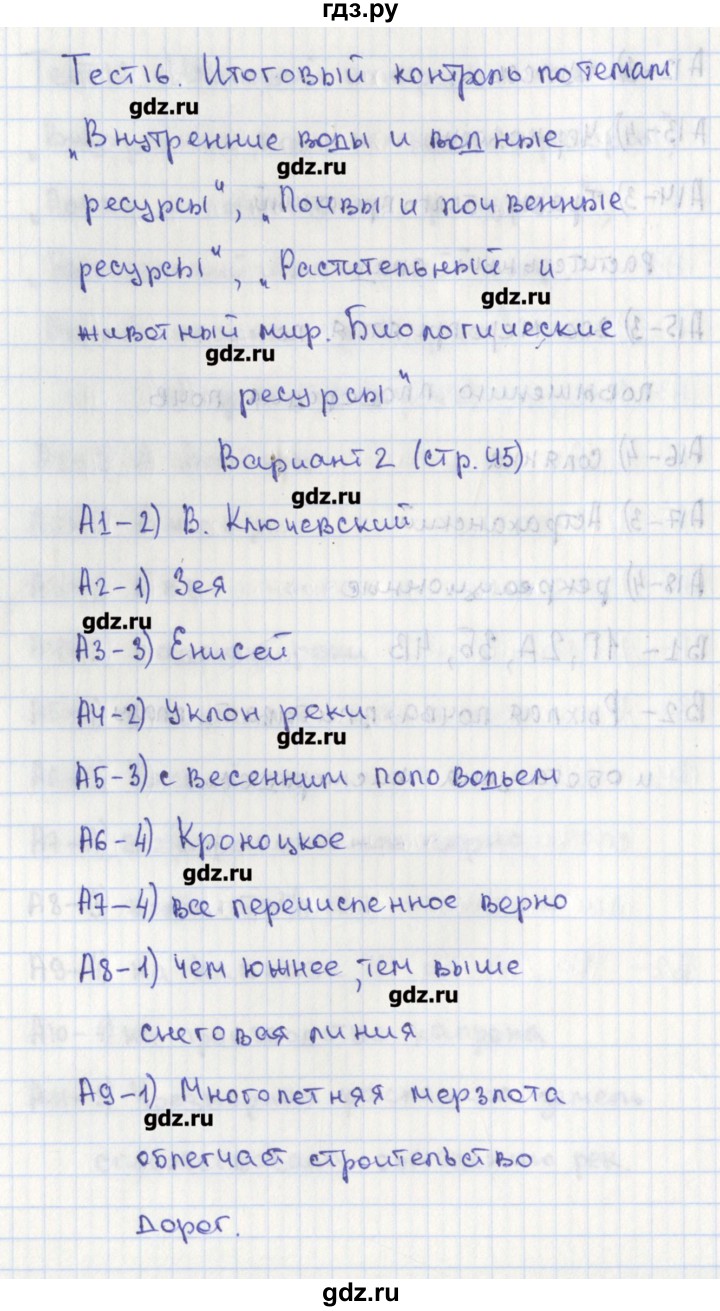 гдз.ру
Тест 16. Итоговый контроль по темам
gdz.ru
„Внутренние воды и водные
gdz.ru
ресурсы“, „Почвы и почвенные
ресурсы“, „Растительный и
gdz.ru
животный мир. Биологические
gdz.ru
ресурсы“
Вариант 2 (стр. 45)
gdz.ru
А1-2) В. Ключевский
А2-1) Зея
gdz.ru
А3-3) Енисей
А4-2) Уклон реки
gdz.ru
А5-3) с весенним половодьем
А6-4) Кроноцкое
gdz.ru
А7-4) все перечисленное верно
А8-1) чем южнее, тем выше
gdz.ru
снеговая линия
А9-1) Многолетняя мерзлота
gdz.ru
облегчает строительство
дорог.
gdz.ru